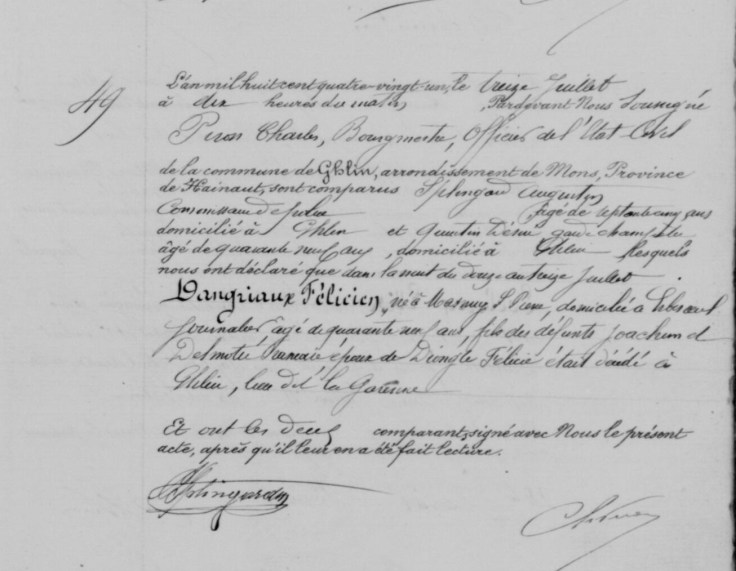 49
L'an mil huit cent quatre-vingt-un, le treize Juillet
à dix heures du matin, Pardevant Nous Soussigné
Piron Charles, Bourgmestre, Officier de l'Etat-Civil
de la commune de Ghlin, arrondissement de Mons, Province
de Hainaut, sont comparus Splingard Augustin
Commissaire de police âgé de septante cinq ans
domicilié à Ghlin et Quentin Désiré garde champêtre
âgé de quarante neuf ans, domicilié à Ghlin lesquels
nous ont déclaré que dans la nuit du douze au treize Juillet
Dangriaux Félicien, né à Masnuy St Pierre, domicilié à
journalier âgé de quarante neuf ans, fils des défunts Joachim et
Delmotte épouse de Félicie était décédé à
Ghlin, lieu dit la Garenne
Et ont les deux comparants, signé avec Nous le présent
acte, après qu'il leur en a été fait lecture.
Splingard